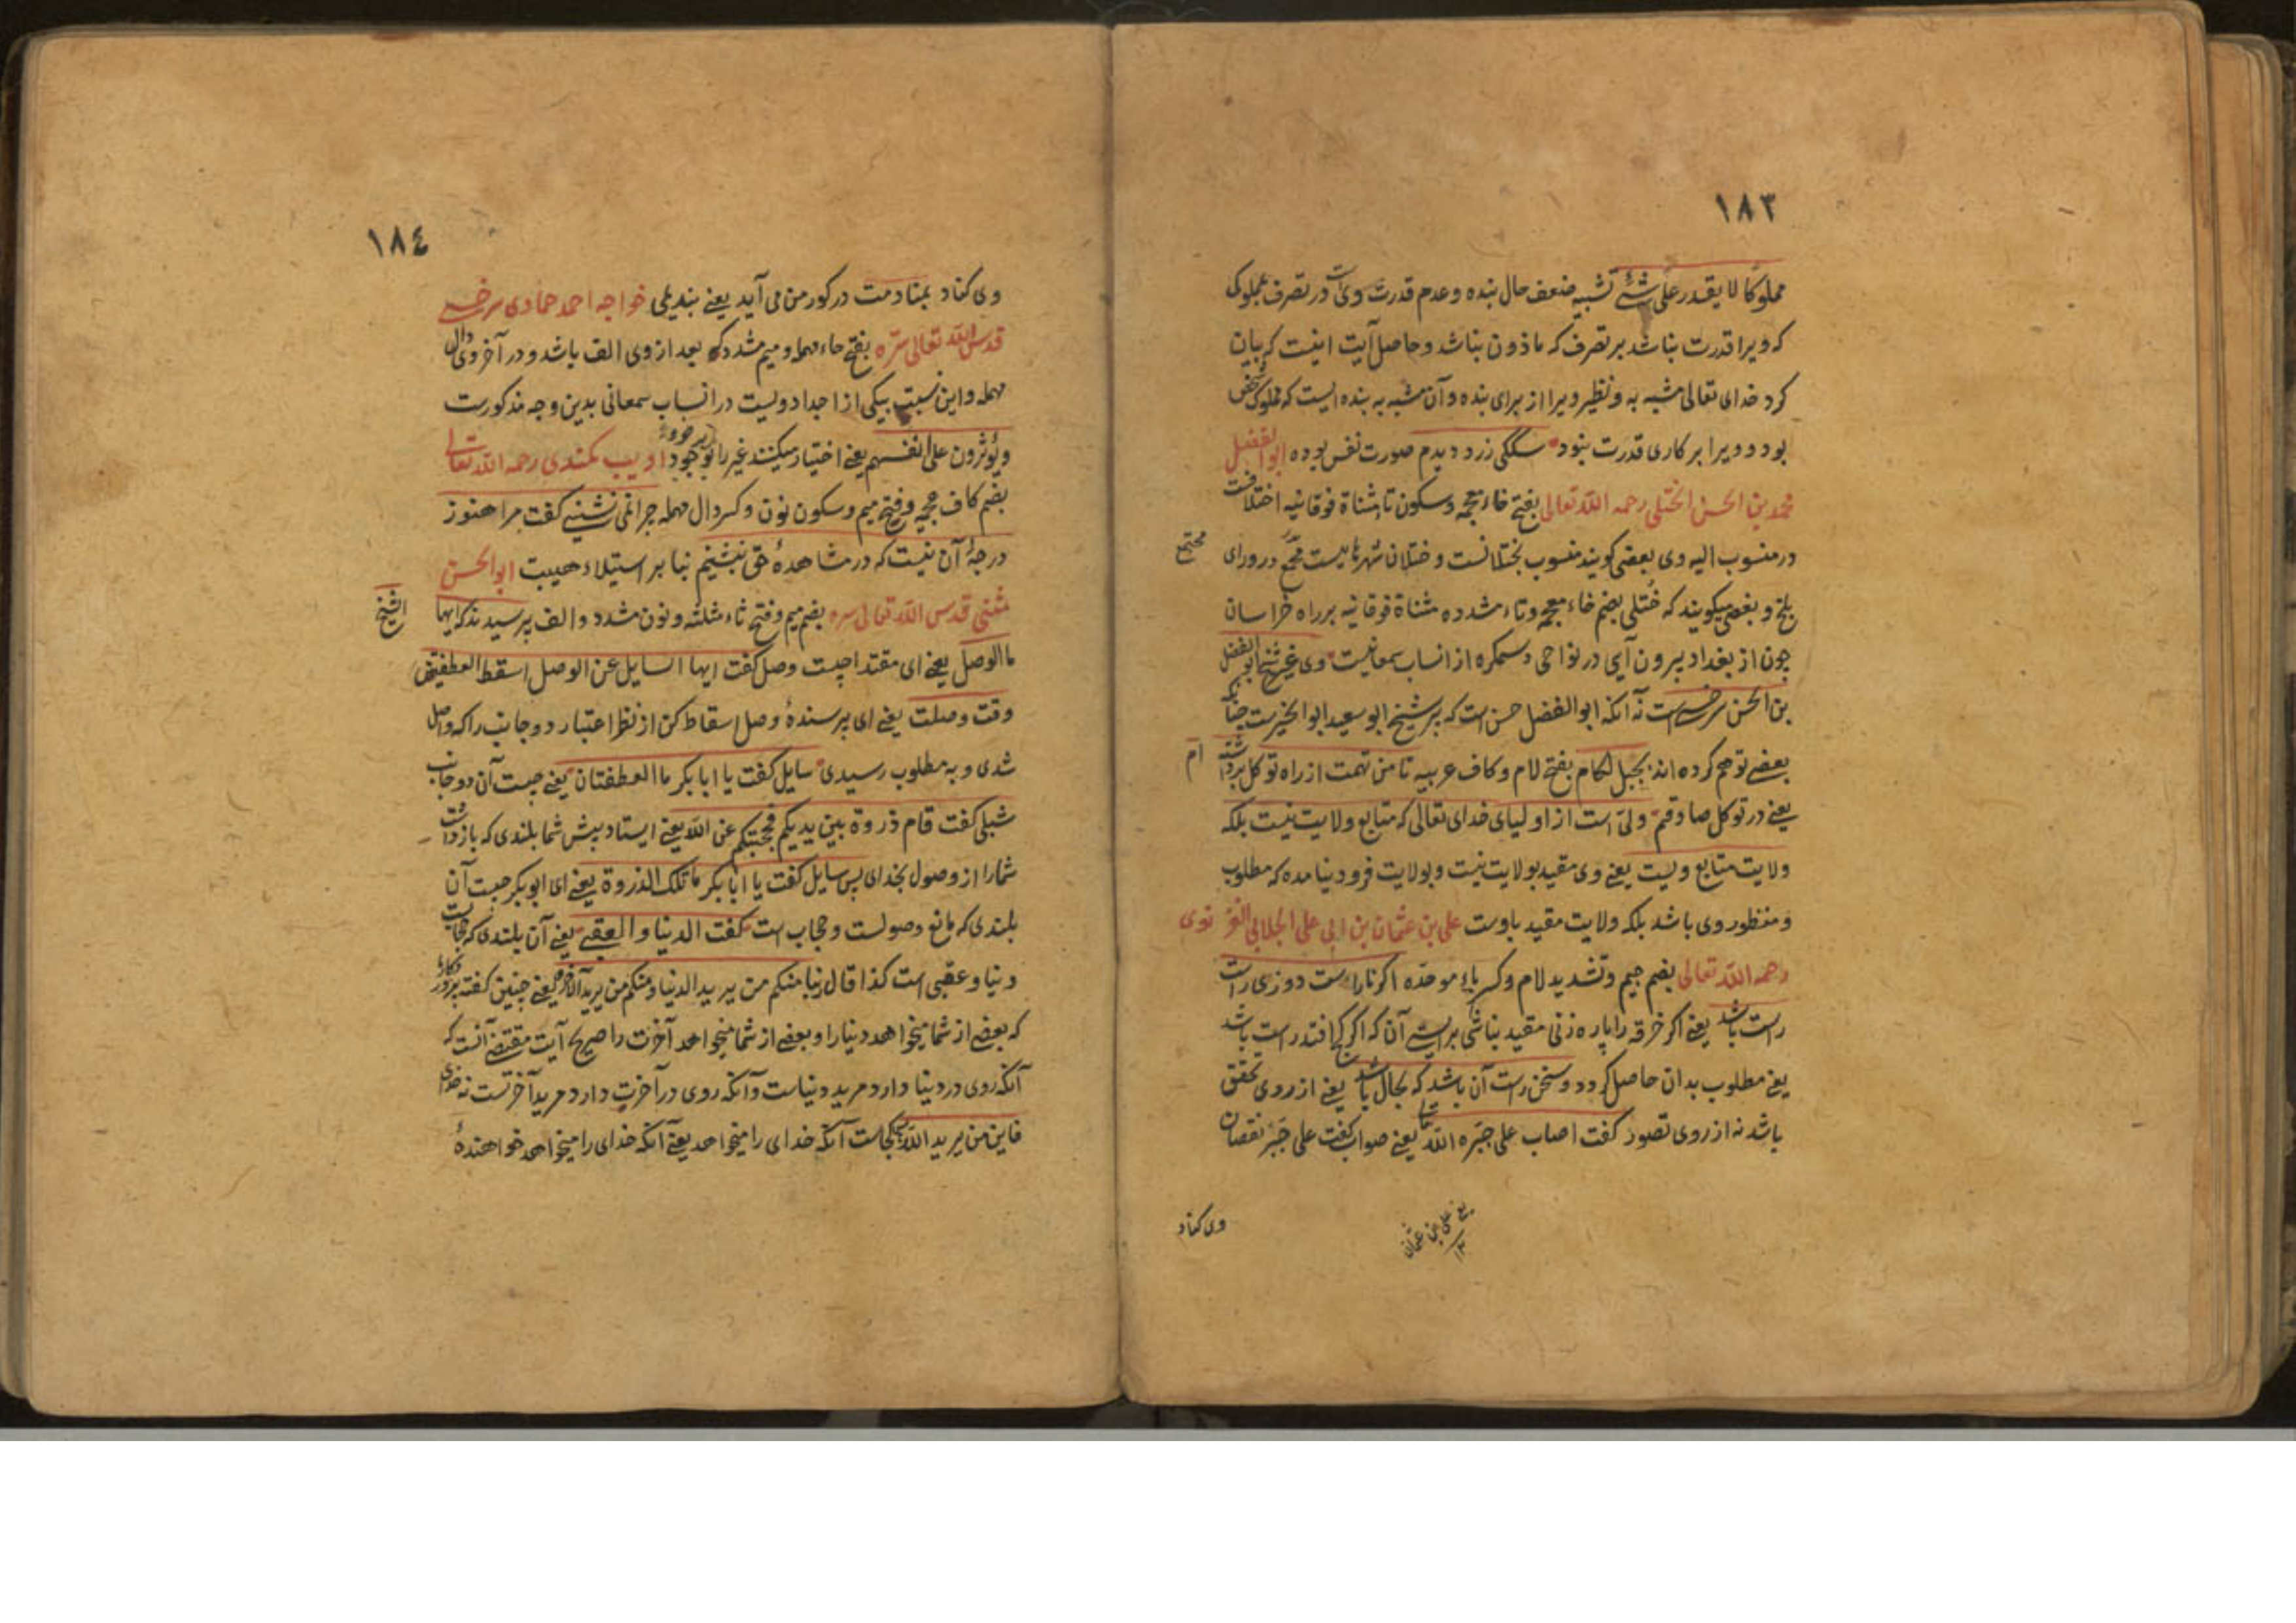 ١٨٣
مملوكا لا يقدر على شئ تشبيه ضعف حال بنده وعدم قدرت وى است در تصرف بمملوكى
كه ويرا قدرت نباشد بر تصرف كه ماذون نباشد وحاصل آيت اينست كه بيان
كرد خداى تعالى مشبه به ونظير ويرا از براى بنده وآن مشبه به بنده ايست كه مملوك شخص
بود وويرا بر كارى قدرت نبود سگكى زرد ديدم صورت نفس بوده ابو الفضل
محمد بن الحسن الختلى رحمه الله تعالى بفتح خاء معجمه وسكون تاء مثناة فوقانيه اختلافست
در منسوب اليه وى بعضى كويند منسوب بختلانست وختلان شهرهاييست مجتمع در وراى
مجتمع
بلخ وبعضى ميكويند كه ختلى بضم خاء معجمه وتاء مشدده مثناة فوقانيه بر راه خراسان
چون از بغداد بيرون آيى در نواحى دسكره از انساب سمعانيست وى غير شيخ ابو الفضل
بن الحسن سرخسى است نه آنكه ابو الفضل حسن است كه پير شيخ ابو سعيد ابو الخيرست چنانكه
بعضى توهم كرده اند بجبل لكام بفتح لام وكاف عربيه تا من تهمت از راه توكل برداشته ام
يعنى در توكل صادقم ولى است از اولياى خداى تعالى كه متابع ولايت نيست بلكه
ولايت متابع ويست يعنى وى مقيد بولايت نيست وبولايت فرود نيامده كه مطلوب
ومنظور وى باشد بلكه ولايت مقيد باوست على بن عثمان بن ابى على الجلابى الغزنوى
رحمه الله تعالى بضم جيم وتشديد لام وكسر باء موحده اكر ناراست دوزى راست
راست باشد يعنى اكر خرقه را پاره زنى مقيد نباشى براستى آن كه اكر كج افتد راست باشد
يعنى مطلوب بدان حاصل كردد وسخن راست آن باشد كه بحال باشد يعنى از روى تحقق
باشد نه از روى تصور كفت اصاب على جبره الله تعا يعنى صواب كفت على جبر نقصان
وى كناد
يعنى على بن عثمان
١٨٤
وى كناد بمنادمت در كور من مى آيد يعنى بنديلى خواجه احمد حمادى سرخسى
قدس الله تعالى سره بفتح حاء مهمله وميم مشدد كه بعد از وى الف باشد ودر آخر وى دال
مهمله واين نسبت بيكى از اجداد ويست در انساب سمعانى بدين وجه مذكورست
ويؤثرون على انفسهم يعنى اختيار ميكنند غير را بر خود اديب كمندى رحمه الله تعالى
بضم كاف عجميه وفتح ميم وسكون نون وكسر دال مهمله چرا نمى نشينى كفت مرا هنوز
درجۀ آن نيست كه در مشاهدۀ حق بنشينم بنا بر استيلاء هيبت ابو الحسن
مثنى قدس الله تعالى سره بضم ميم وفتح ثاء مثلثه ونون مشدد والف پرسيدند كه ايها
الشيخ
ما الوصل يعنى اى مقتدا چيست وصل كفت ايها السايل عن الوصل اسقط العطفتين
وقت وصلت يعنى اى پرسندۀ وصل اسقاط كن از نظر اعتبار دو جانب را كه واصل
شدى وبه مطلوب رسيدى سايل كفت يا ابا بكر ما العطفتان يعنى چيست آن دو جانب
شبلى كفت قام ذروة بين يديكم فحجبتكم عن الله يعنى ايستاد پيش شما بلندى كه بازداشت
شمارا از وصول بخداى پس سايل كفت يا ابا بكر ما تلك الذروة يعنى اى ابو بكر چيست آن
بلندى كه مانع وصولست وحجاب است كفت الدنيا والعقبى يعنى آن بلندى كه حجابست
دنيا وعقبى است كذا قال ربنا منكم من يريد الدنيا ومنكم من يريد الآخرة يعنى چنين كفته پروردكار ما
كه بعضى از شما ميخواهد دنيا را وبعضى از شما ميخواهد آخرت را صريح آيت مقتضى آنست كه
آنكه روى در دنيا دارد مريد دنياست وآنكه روى در آخرت دارد مريد آخرتست نه خداى
فاين من يريد الله پس كجاست آنكه خداى را ميخواهد يعنى آنكه خداى را ميخواهد خواهندۀ